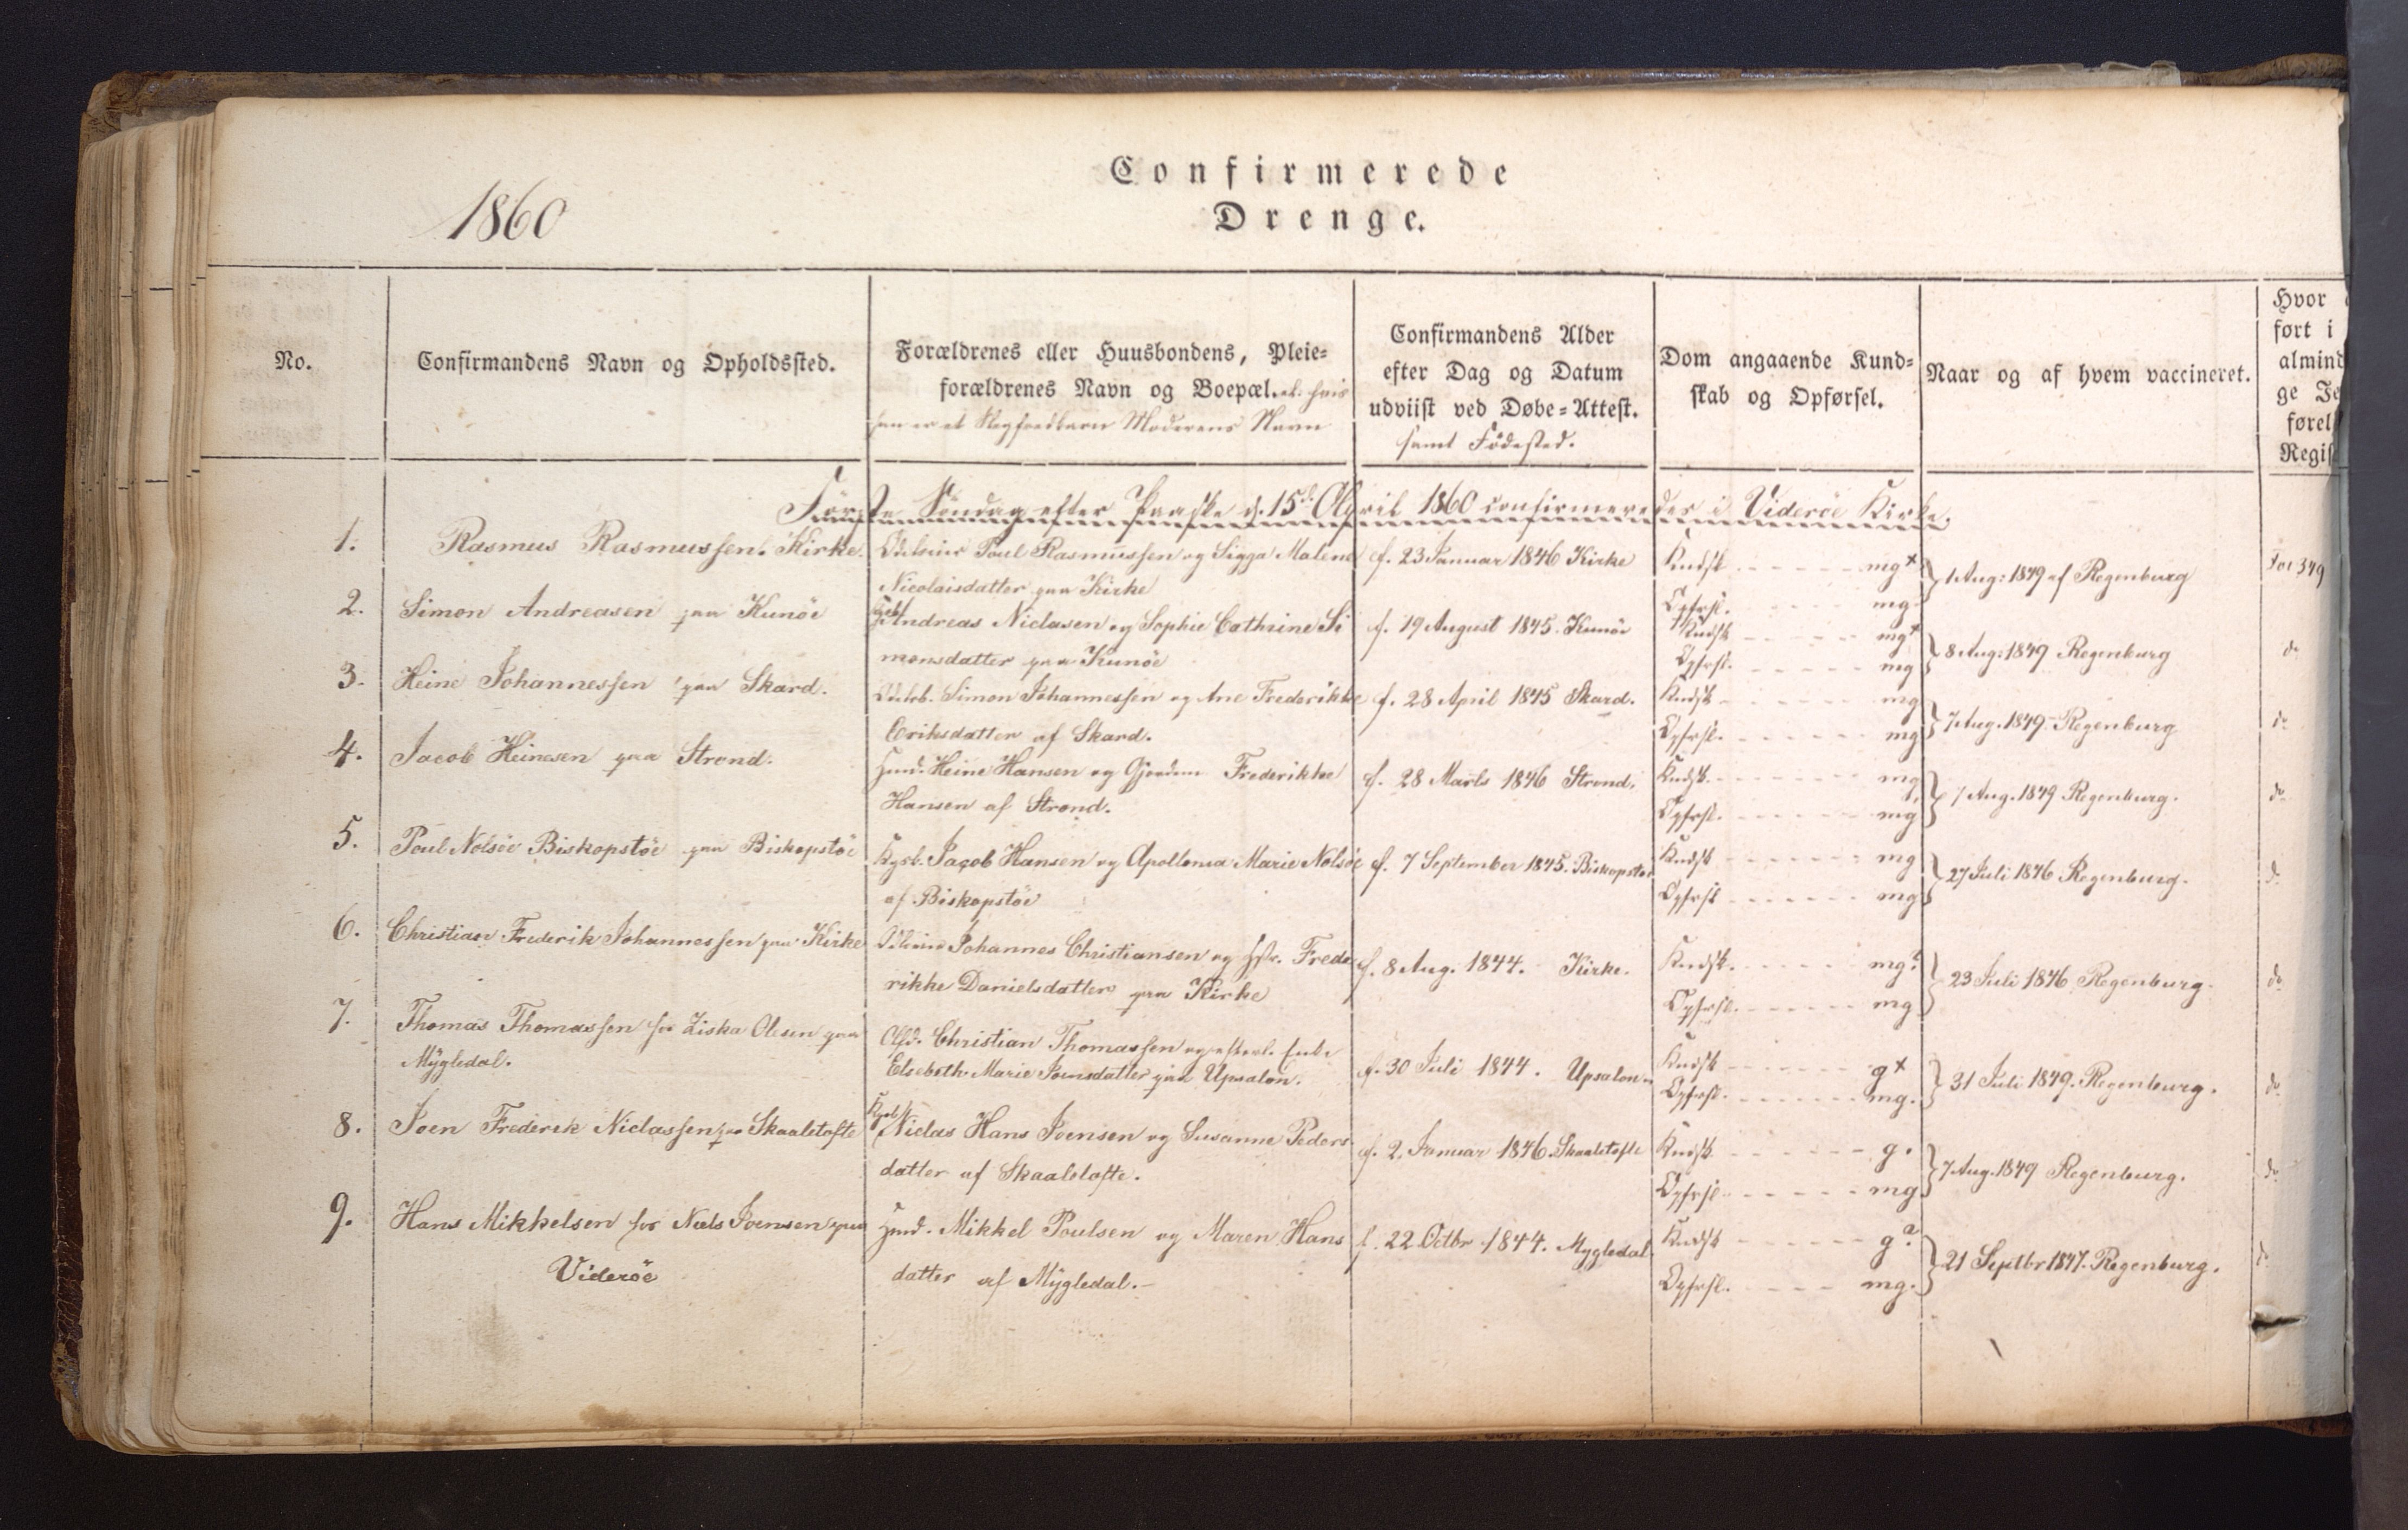 Confirmerede
1860
Drenge.
No.
Confirmandens Navn og Opholdssted.
Forældrenes eller Huusbondens, Pleie=
forældrenes Navn og Boepæl. el. hvis
han er et Slegfredbarn Moderens Navn
Confirmandens Alder
efter Dag og Datum
udviist ved Døbe=Attest.
samt Födested.
Dom angaaende Kund=
skab og Opførsel.
Naar og af hvem vaccineret.
Hvor
ført i
almind
ge Je
førel
Regis
Første Söndag efter Paaske d. 15de April 1860 confirmeredes i Videröe Kirke.
1.
Rasmus Rasmussen. Kirke.
Poul Rasmussen og Sigga Malene
Nicolaisdatter paa Kirke
f. 23 Januar 1846 Kirke
Kndsk. - - - - - mg+
Opfrsl. - - - - mg.
1 Aug: 1849 af Regenburg
Fol 349
2.
Simon Andreasen paa Kunöe
Kgsb. Andreas Niclasen og Sophie Cathrine Si
monsdatter paa Kunöe
f. 19 August 1845. Kunöe
Kndsk - - - - - mg+
Opfrsl. - - - - - mg
8 Aug: 1849 Regenburg
do
3.
Heine Johannessen paa Skard.
Odelsb. Simon Johannessen og Ane Frederikke
Eriksdatter af Skard.
f. 28 April 1845 Skard.
Kndsk - - - - - - mg
Opfrsl. - - - - - - mg
7 Aug. 1849 - Regenburg
do
4.
Jacob Heinesen paa Strond.
Huusmd. Heine Hansen og Gjordem. Frederikke
Hansen af Strond.
f. 28 Marts 1846 Strond.
Kndsk. - - - - - - mg
Opfrsl. - - - - - - mg
7 Aug. 1849 Regenburg.
do
5.
Poul Nolsöe Biskopstöe paa Biskopstöe
Kgsb. Jacob Hansen og Apollonia Marie Nolsöe
af Biskopstöe
f. 7 September 1845. Biskopstöe
Kndsk - - - - - - mg
Opfrsl - - - - - - mg
27 Juli 1846 Regenburg.
do
6.
Christian Frederik Johannessen paa Kirke
Johannes Christiansen og Hstr. Frede
rikke Danielsdatter paa Kirke
f. 8 Aug. 1844. Kirke.
Kndsk. - - - - - mg?
Opfrsl. - - - - - - mg
23 Juli 1846 Regenburg.
do
7.
Thomas Thomassen hos Ziska Olesen paa
Mygledal.
Afd. Christian Thomassen og efterl. Enke
Elsebeth Marie Joensdatter paa Upsalon.
f. 30 Juli 1844. Upsalon
Kndsk - - - - - - g+
Opfrsl. - - - - - - mg.
31 Juli 1849. Regenburg.
do
8.
Joen Frederik Niclassen paa Skaaletofte
Kgsb. Niclas Hans Joensen og Susanne Peders
datter af Skaaletofte.
f. 2. Januar 1846. Skaaletofte
Kndsk - - - - - - g.
Opfrsl. - - - - - mg
7 Aug. 1849 Regenburg.
do
9.
Hans Mikkelsen hos Niels Joensen paa
Videröe
Huusmd. Mikkel Poulsen og Maren Hans
datter af Mygledal. -
f. 22 Octbr 1844. Mygledal
Kndsk - - - - - - g?
Opfrsl. - - - - - mg.
21 Septbr 1847. Regenburg.
do